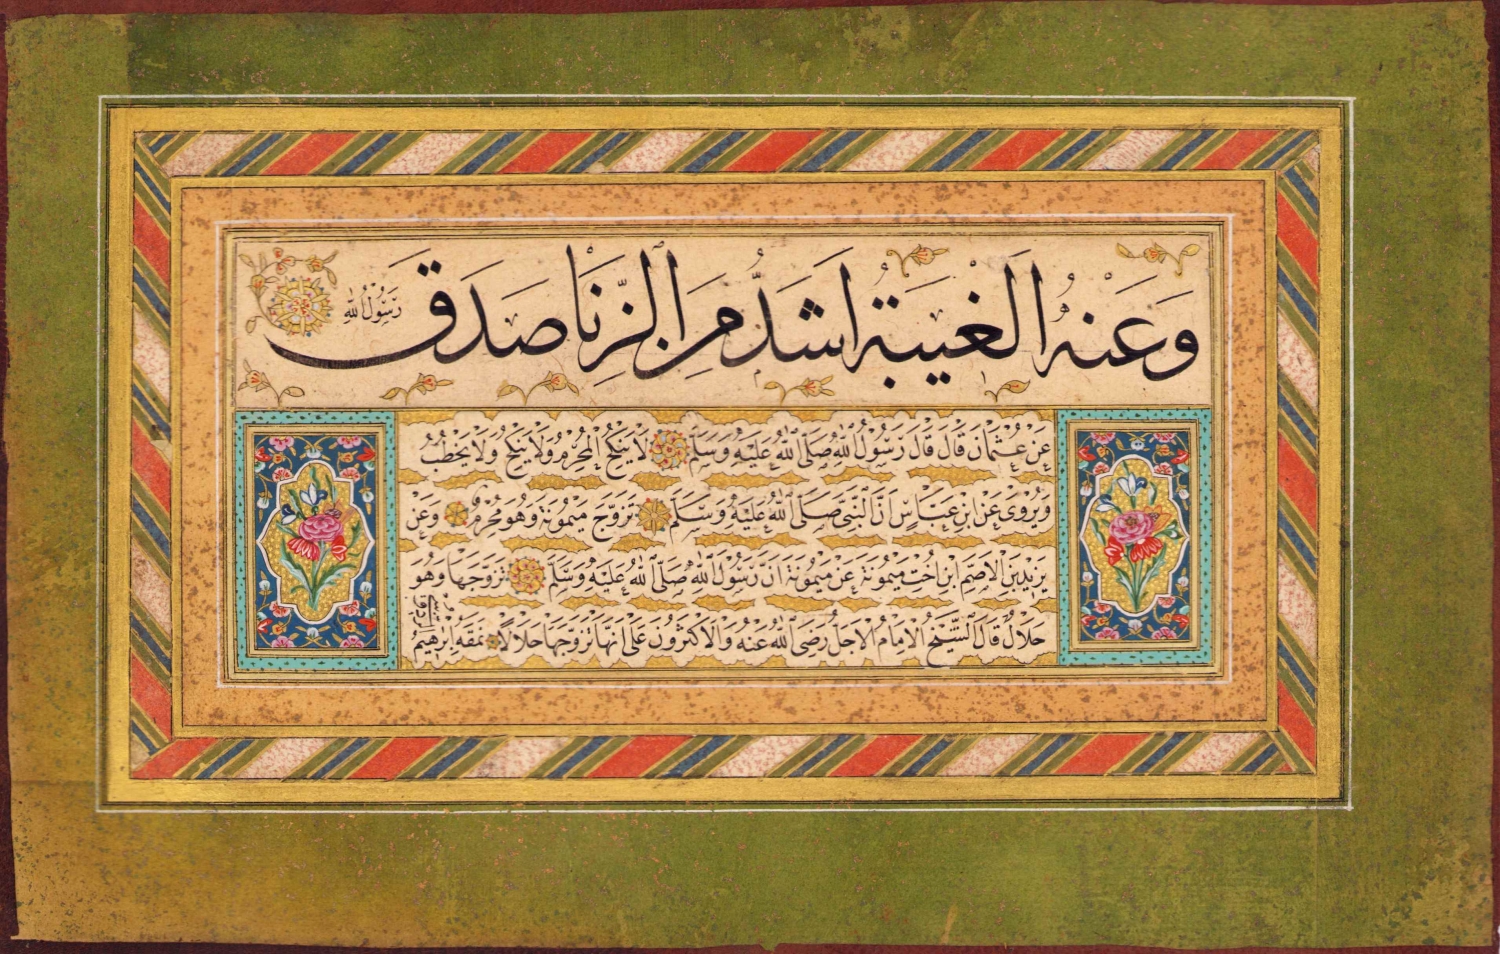 وَعَنْهُ الَغيبَةُ اَشَدُّ مِنَ الزِّنَا صَدَقَ رَسُولُ اللهِ
عَنْ عُثْمَانَ قَالَ قَالَ رَسُولُ اللهِ صَلَّى اللهُ عَلَيْهِ وَسَلَّمَ لَا يَنْكِحُ الْمُحْرِمُ وَلَا يُنْكِحُ وَلَا يَخْطُبُ
وَيُرْوٰى عَنْ ابْنِ عَبَّاسٍ اَنَّ النَّبِيَّ صَلَّى اللهُ عَلَيْهِ وَسَلَّمَ تَزَوَّجَ مَيْمُونَةَ وَهُوَ مُحْرِمٌ وَعَنْ
يزِيدَ بْنِ الْاَصَمِّ ابْنِ اُخْتِ مَيْمُونَةَ عَنْ مَيْمُونَةَ اَنَّ رَسُولَ اللهِ صَلَّى اللهُ عَلَيْهِ وَسَلَّمَ تَزَوَّجَهَا وَهُوَ
حَلَالٌ قَالَ الشَّيْخُ الْاِمَامُ الْاَجَلُّ رَضِىَ اللهُ عَنْهُ وَالْاَكْثَرُونَ عَلٰى اَنَّهَا تَزَوَّجَهَا حَلَالًا نَمَقَهُ اِبْرٰهِيمُ